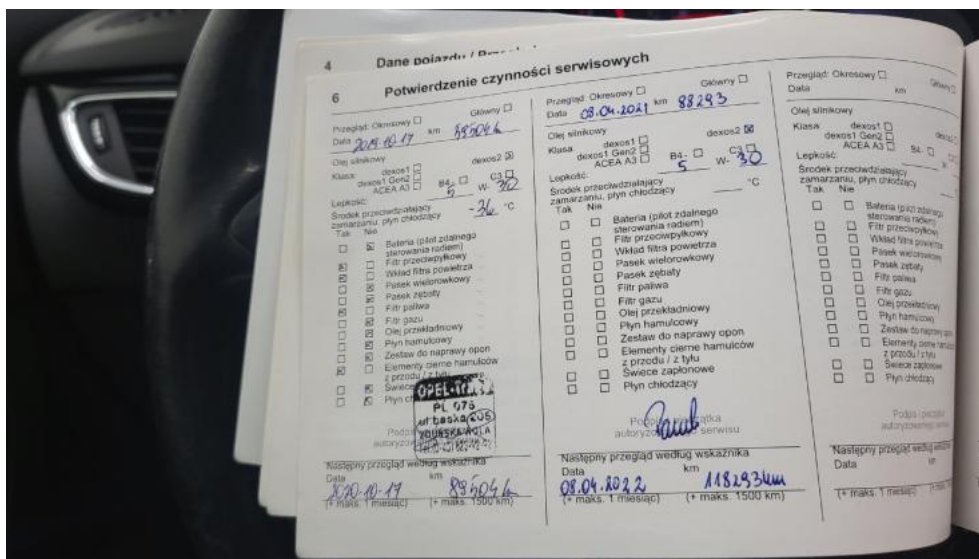 4 Dane pojazdu /
6 Potwierdzenie czynności serwisowych
Przegląd: Okresowy Główny
Data 2019-10-17 km 59504 km
Olej silnikowy
Klasa: dexos1 dexos2
dexos1 Gen2
ACEA A3 B4- C3
Lepkość: 5 W- 30
Środek przeciwdziałający
zamarzaniu, płyn chłodzący -36 °C
Tak Nie
Bateria (pilot zdalnego
sterowania radiem)
Filtr przeciwpyłkowy
Wkład filtra powietrza
Pasek wielorowkowy
Pasek zębaty
Filtr paliwa
Filtr gazu
Olej przekładniowy
Płyn hamulcowy
Zestaw do naprawy opon
Elementy cierne hamulców
z przodu / z tyłu
Świece
Płyn
PL 075
Następny przegląd według wskaźnika
Data km
2020-10-17 89504 km
(+ maks. 1 miesiąc) (+ maks. 1500 km)
Przegląd: Okresowy Główny
Data 08.04.2021 km 88293
Olej silnikowy
Klasa: dexos1 dexos2
dexos1 Gen2
ACEA A3 B4- C3
Lepkość: 5 W- 30
Środek przeciwdziałający
zamarzaniu, płyn chłodzący °C
Tak Nie
Bateria (pilot zdalnego
sterowania radiem)
Filtr przeciwpyłkowy
Wkład filtra powietrza
Pasek wielorowkowy
Pasek zębaty
Filtr paliwa
Filtr gazu
Olej przekładniowy
Płyn hamulcowy
Zestaw do naprawy opon
Elementy cierne hamulców
z przodu / z tyłu
Świece zapłonowe
Płyn chłodzący
serwisu
Następny przegląd według wskaźnika
Data km
08.04.2022 118293 km
(+ maks. 1 miesiąc) (+ maks. 1500 km)
Przegląd: Okresowy Główny
Data km
Olej silnikowy
Klasa: dexos1
dexos1 Gen2
ACEA A3 B4-
Lepkość:
Środek przeciwdziałający
zamarzaniu, płyn chłodzący
Tak Nie
Bateria (pilot zdalnego
sterowania radiem)
Filtr przeciwpyłkowy
Wkład filtra powietrza
Pasek wielorowkowy
Pasek zębaty
Filtr paliwa
Filtr gazu
Olej przekładniowy
Płyn hamulcowy
Zestaw do naprawy
Elementy cierne
z przodu / z tyłu
Świece zapłonowe
Płyn chłodzący
Następny przegląd według
Data km
(+ maks. 1 miesiąc) (+ maks. 1500